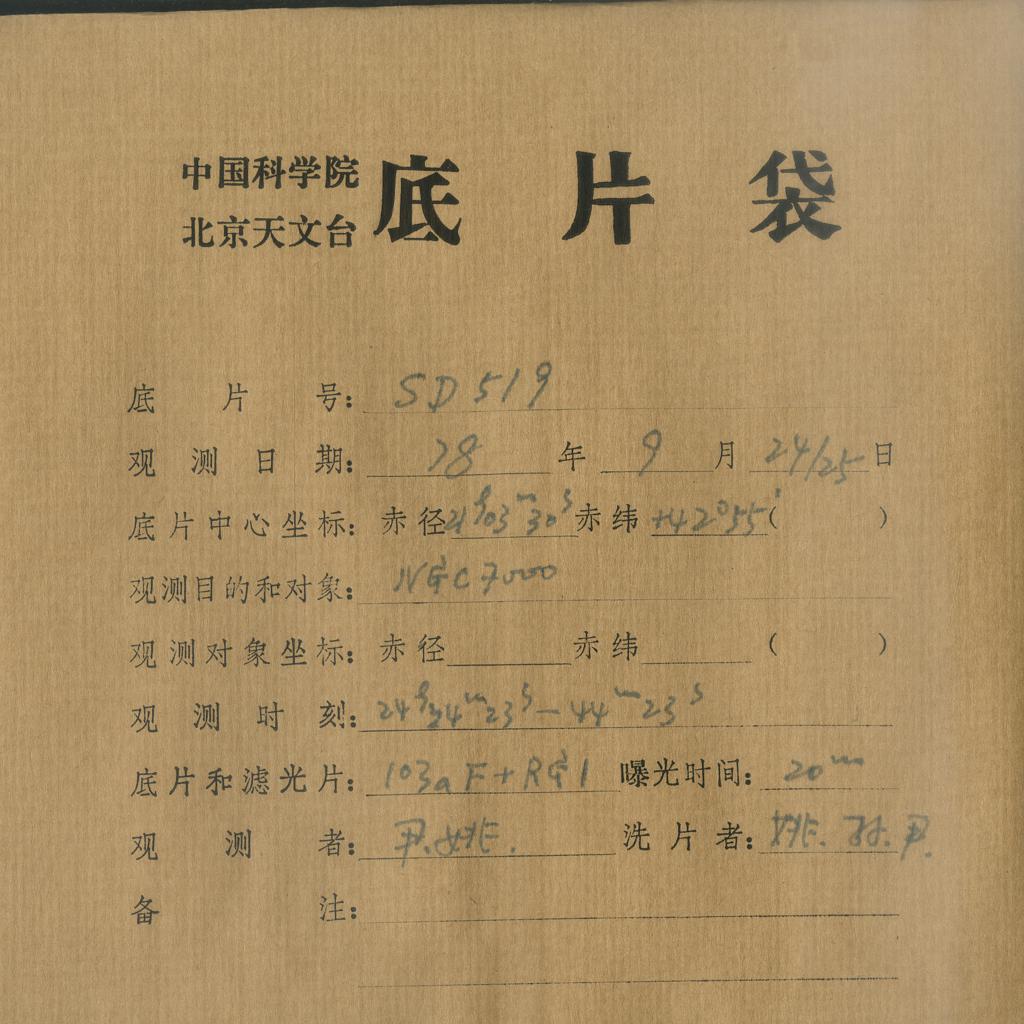 中国科学院
北京天文台
底片袋
底片号: SD519
观测日期: 78年9月24/25日
底片中心坐标: 赤径21h03m30s赤纬+42°55'( )
观测目的和对象: NGC7000
观测对象坐标: 赤径 赤纬 ( )
观测时刻: 24h24m23s—44m23s
底片和滤光片: 103aF+RG1 曝光时间: 20m
观测者: 尹.姚. 洗片者: 姚.孙.尹.
备注: